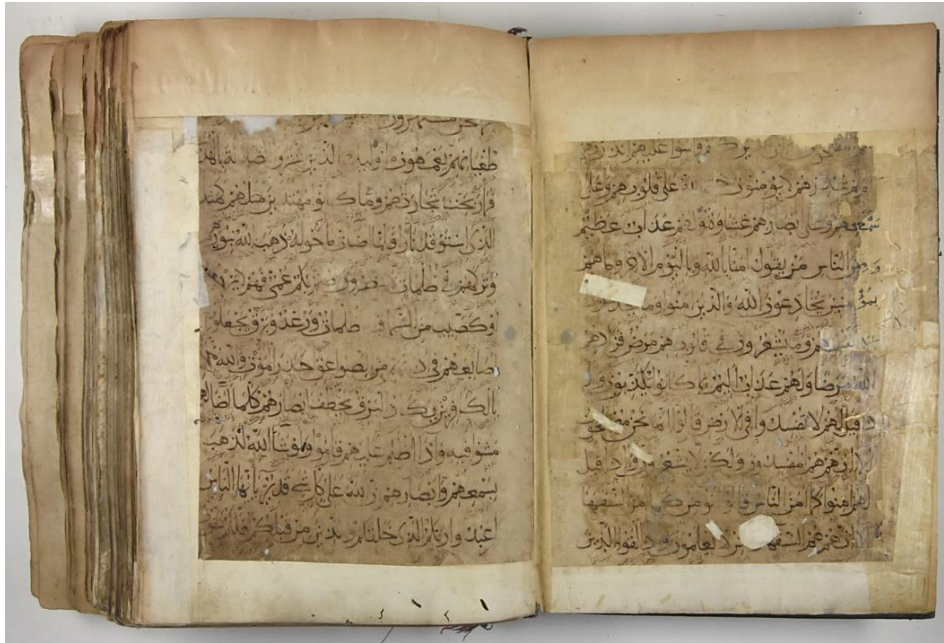 سوا عليهم
تنذرهم لا يومنون على قلوبهم وعلى
سمعهم وعلى ابصارهم غشاوة ولهم عذاب عظيم
ومن الناس من يقول امنا بالله وباليوم الاخر وما هم
بمومنين يخادعون الله والذين امنوا وما يخدعون
وما يشعرون في قلوبهم مرض فزادهم
الله مرضا ولهم عذاب اليم بما كانوا يكذبون واذا
قيل لهم لا تفسدوا في الارض قالوا انما نحن مصلحون
الا انهم هم المفسدون ولكن لا يشعرون واذا قيل
لهم امنوا كما امن الناس قالوا انومن كما امن السفهاء
الا انهم هم السفهاء لا يعلمون واذا لقوا الذين
طغيانهم يعمهون اوليك الذين اشتروا الضلالة بالهدى
فما ربحت تجارتهم وما كانوا مهتدين مثلهم كمثل
الذي استوقد نارا فلما اضات ما حوله ذهب الله بنورهم
وتركهم في ظلمات لا يبصرون صم بكم عمي فهم لا يرجعون
او كصيب من السما فيه ظلمات ورعد وبرق يجعلون
اصابعهم في اذانهم من الصواعق حذر الموت والله محيط
بالكافرين يكاد البرق يخطف ابصارهم كلما اضا لهم
مشوا فيه واذا اظلم عليهم قاموا ولو شا الله لذهب
بسمعهم وابصارهم ان الله على كل شي قدير يايها الناس
اعبدوا ربكم الذي خلقكم والذين من قبلكم لعلكم